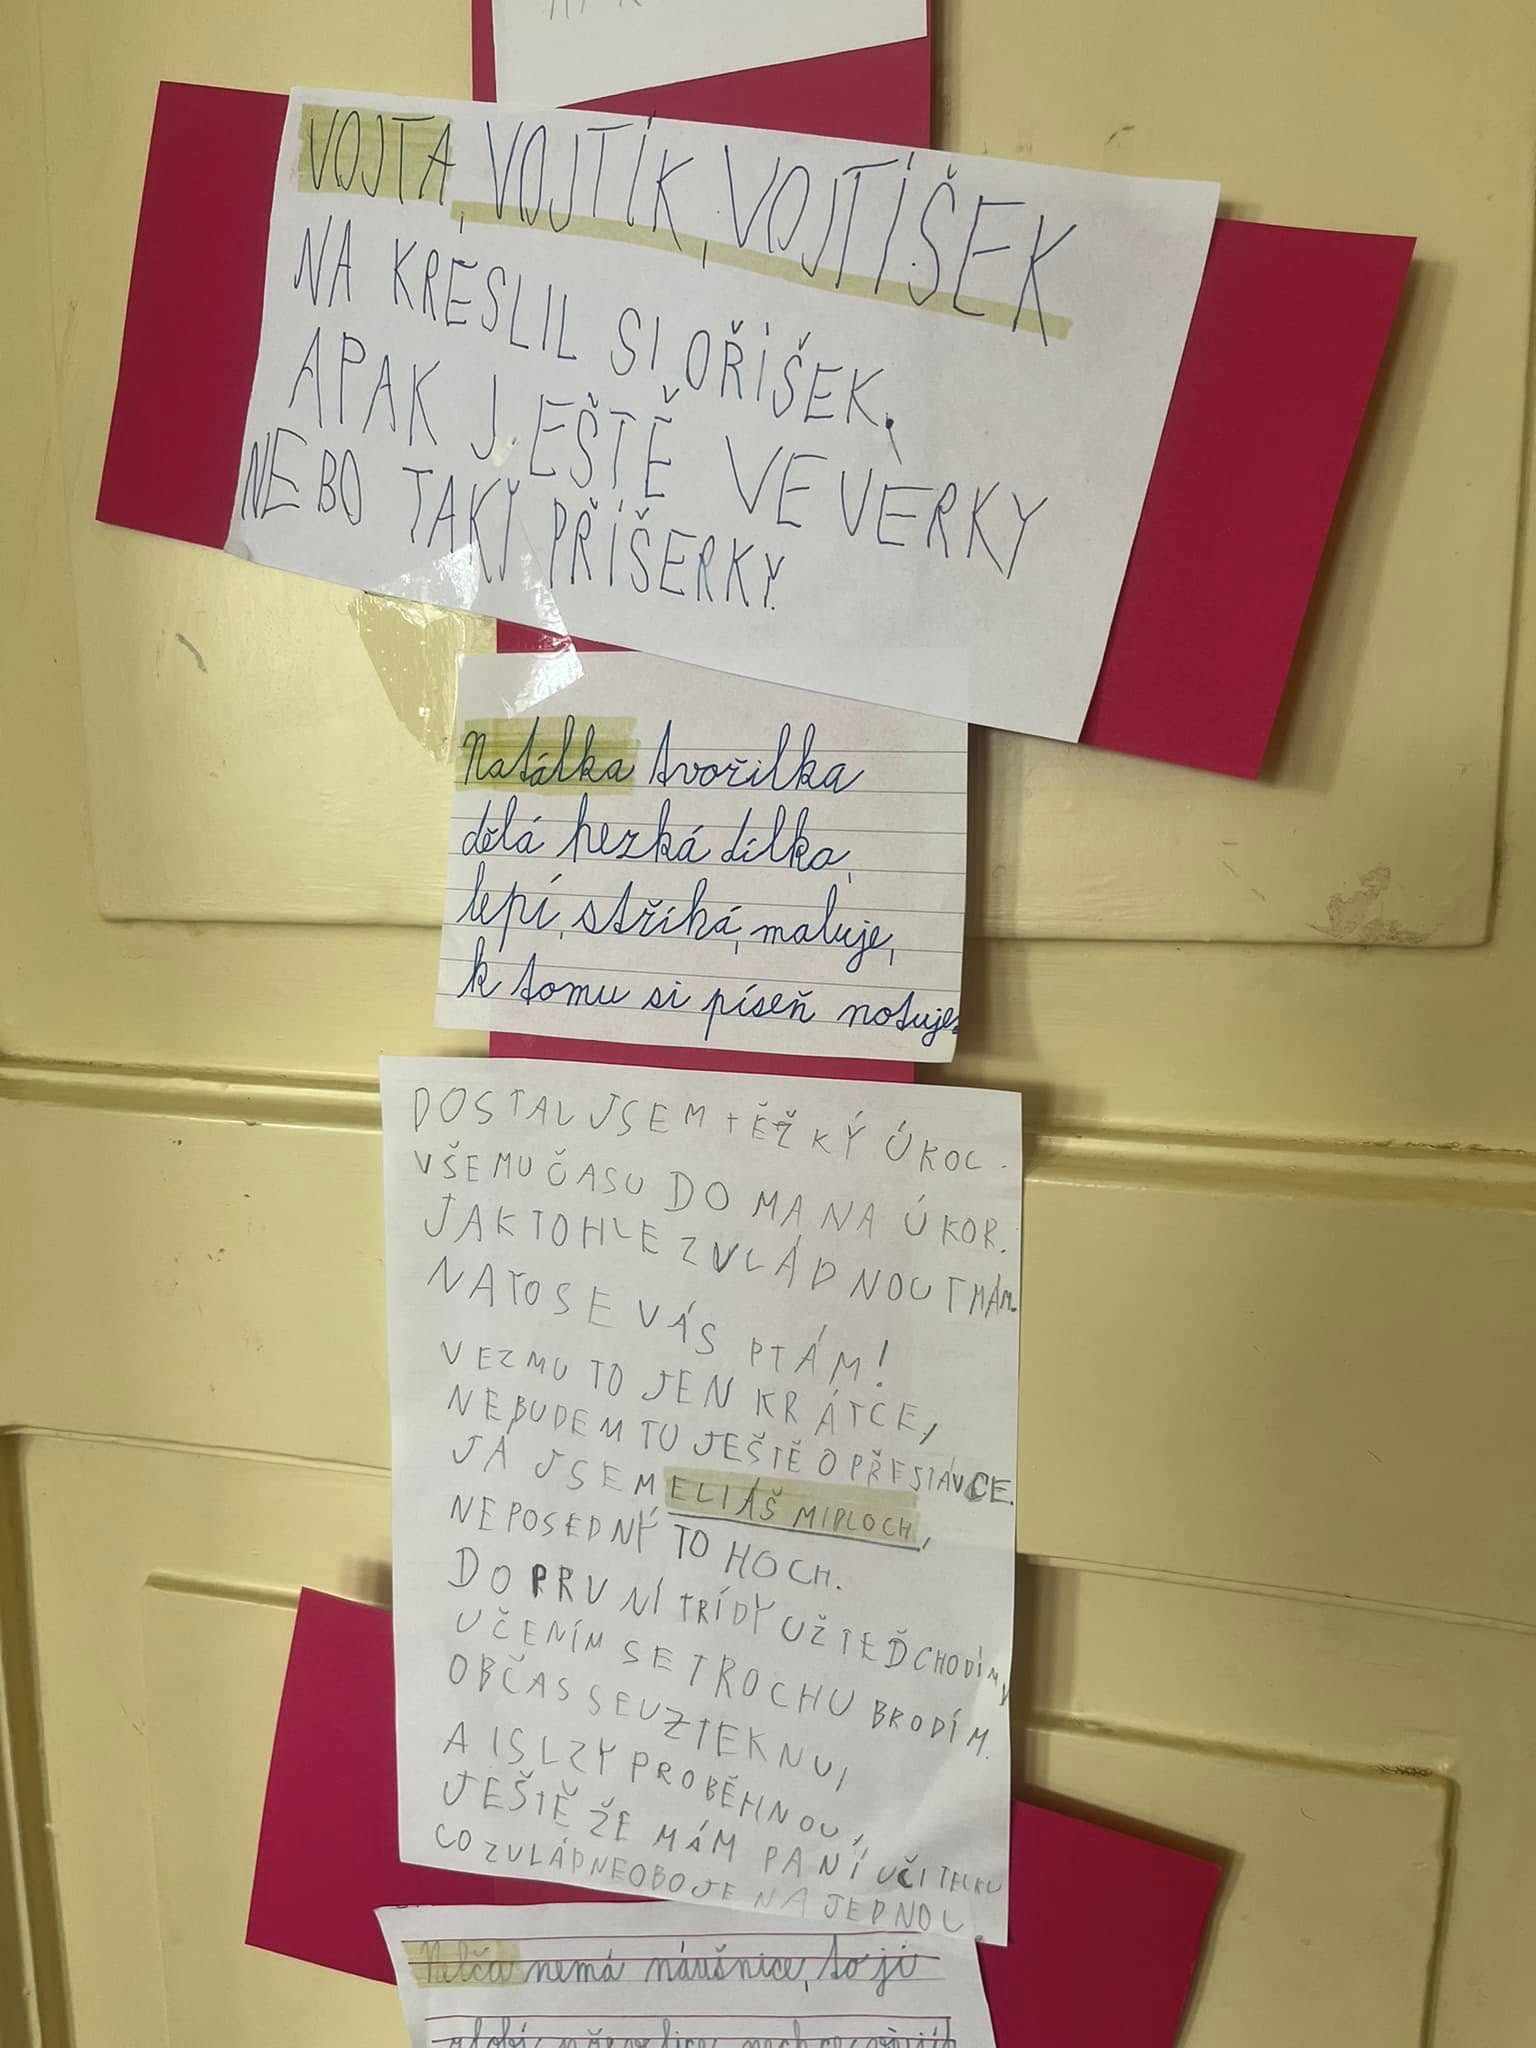 VOJTA, VOJTÍK, VOJTÍŠEK
NA KRESLIL SI OŘÍŠEK.
APAK JEŠTĚ VEVERKY
NEBO TAKY PŘÍŠERKY.
Natálka tvořilka
dělá hezká dílka,
lepí, stříhá, maluje,
k tomu si píseň notuje.
DOSTAL JSEM TĚŽKÝ ÚKOL.
VŠEMU ČASU DOMA NA ÚKOR.
JAK TOHLE ZVLÁDNOUT MÁM.
NATO SE VÁS PTÁM!
VEZMU TO JEN KRÁTCE,
NEBUDEM TU JEŠTĚ O PŘESTÁVCE.
JÁ JSEM ELIÁŠ MIPLOCH,
NEPOSEDNÝ TO HOCH.
DO PRVNÍ TŘÍDY UŽ TEĎ CHODÍM,
UČENÍM SE TROCHU BRODÍM.
OBČAS SE VZTEKNU,
A I SLZY PROBĚHNOU,
JEŠTĚ ŽE MÁM PANÍ UČITELKU
CO ZVLÁDNE OBOJE NA JEDNOU
Nelča nemá náušnice, to ji
zlobí převelice, nechce